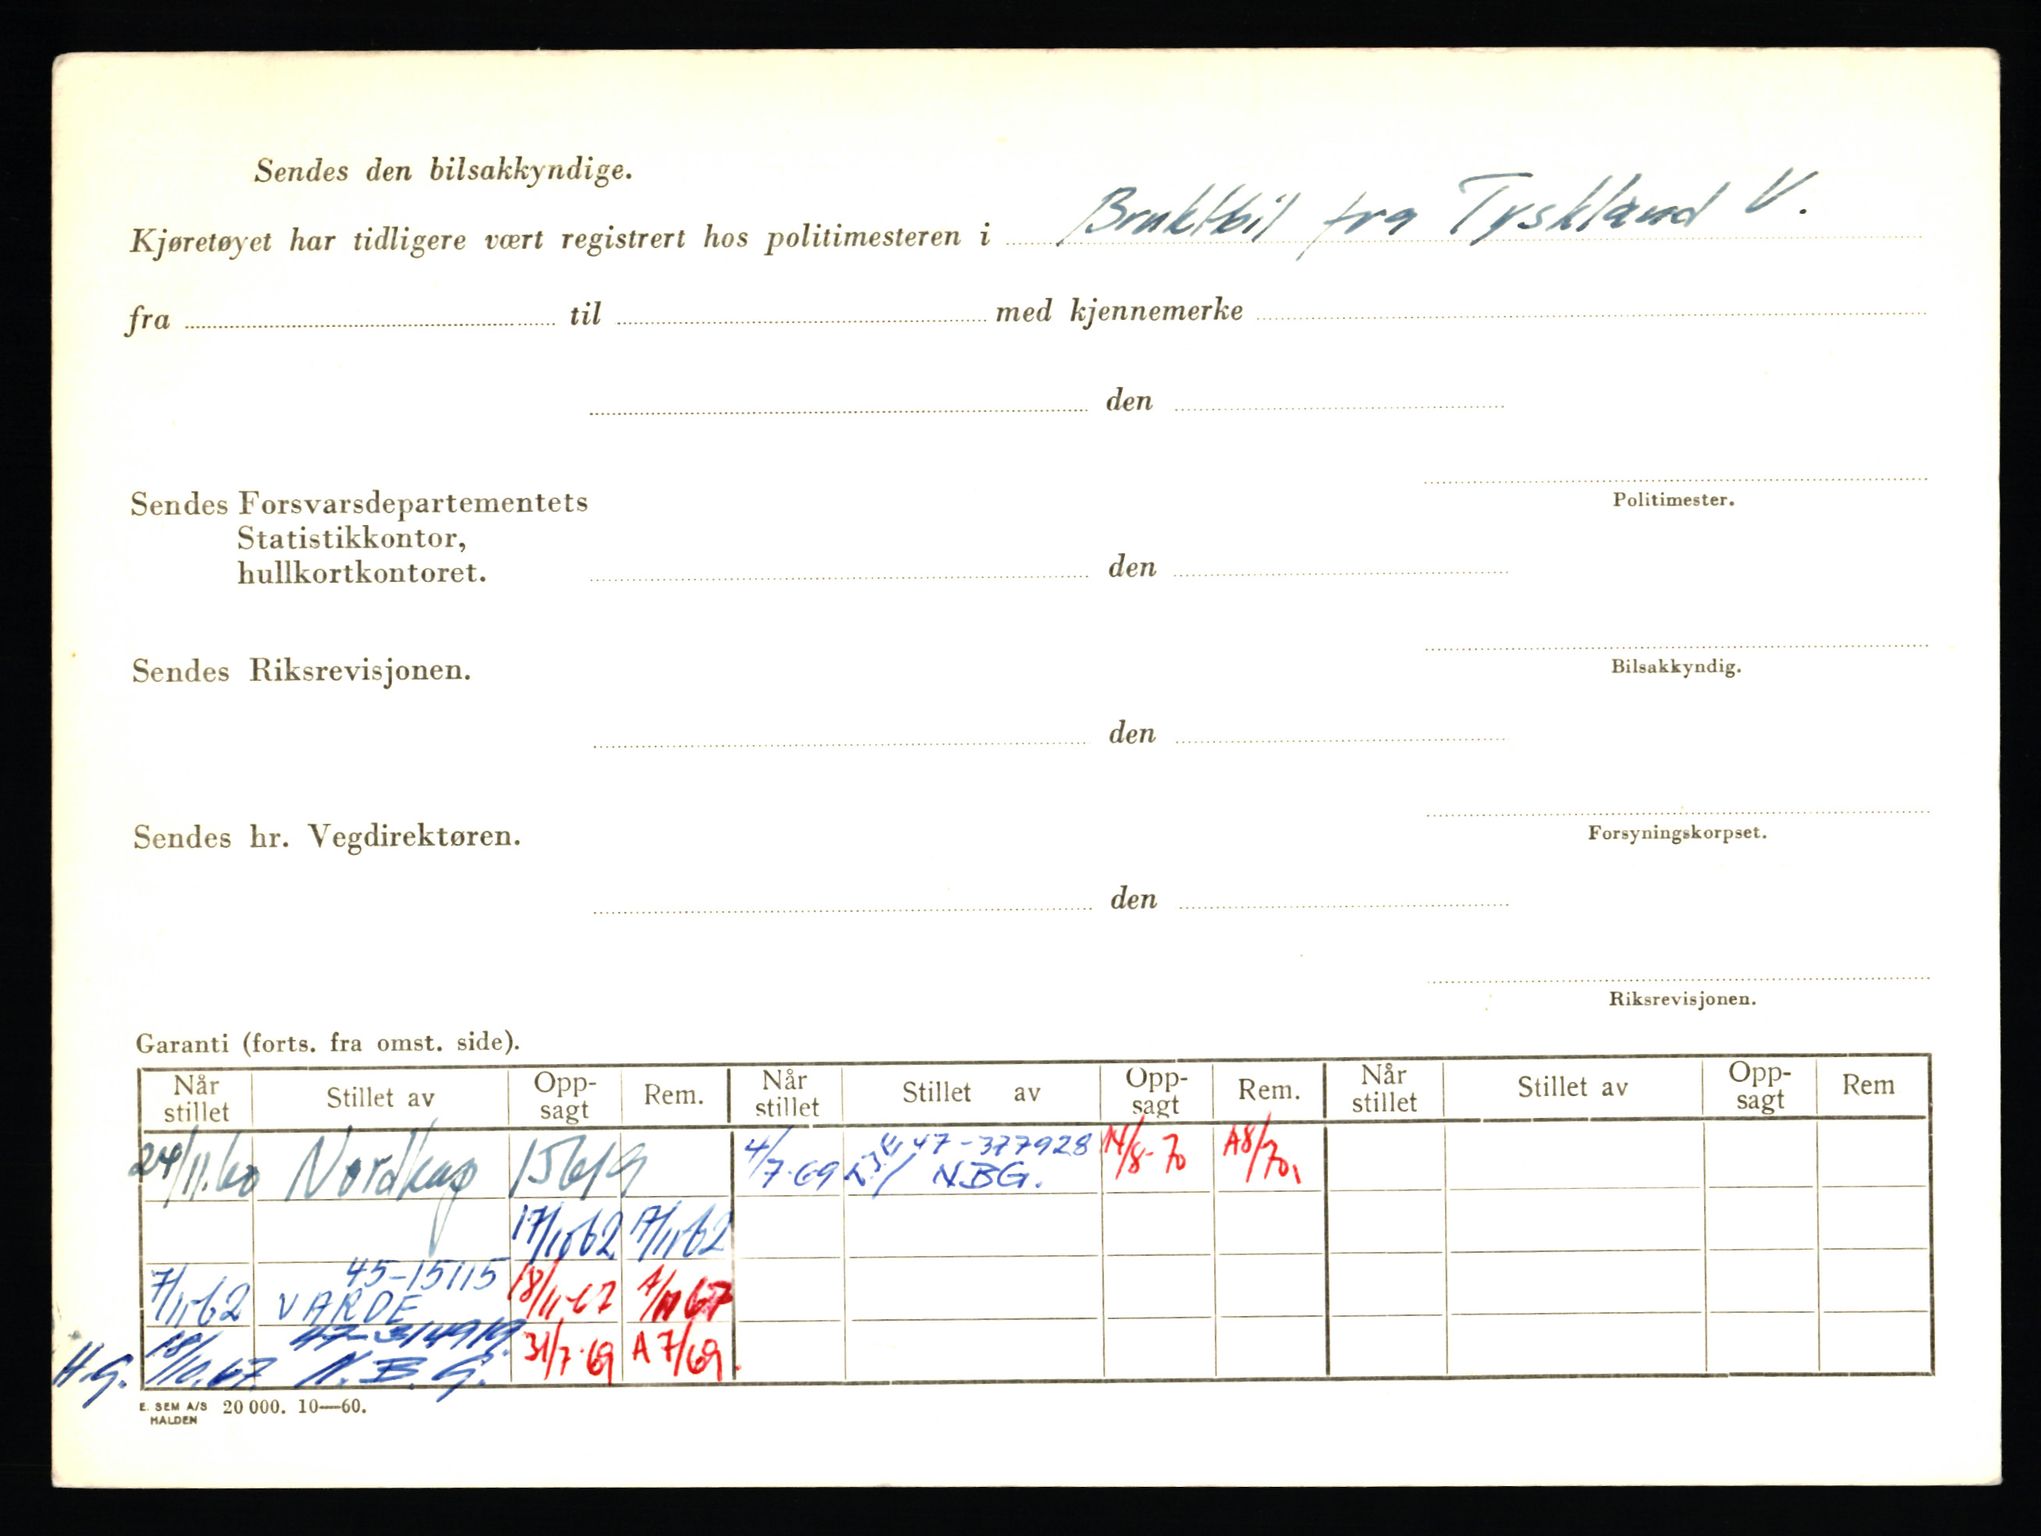 Sendes den bilsakkyndige.
Kjøretøyet har tidligere vært registrert hos politimesteren i Bruktbil fra Tyskland V.
fra til med kjennemerke
den
Politimester.
Sendes Forsvarsdepartementets
Statistikkontor,
hullkortkontoret.
den
Bilsakkyndig.
Sendes Riksrevisjonen.
den
Forsyningskorpset.
Sendes hr. Vegdirektøren.
den
Riksrevisjonen.
Garanti (forts. fra omst. side).
Når stillet Stillet av Opp-sagt Rem. Når stillet Stillet av Opp-sagt Rem. Når stillet Stillet av Opp-sagt Rem
24/11.60 Nordkap 15619 4/7.69 47-377928 N.BG. 14/8-70 A8/70.
17/11-62 A/11-62
7/11-62 45-15115 VARDE 18/11-67 A/11 67
H.G. 18/10.67. N.B.G. 31/7.69 A 7/69.
E. SEM A/S HALDEN 20 000. 10—60.